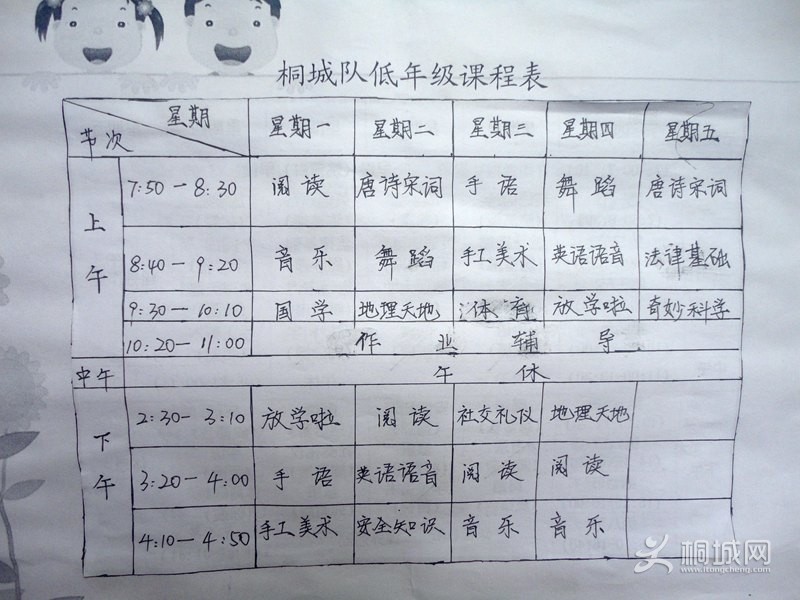 桐城队低年级课程表
星期 节次 星期一 星期二 星期三 星期四 星期五
上午
7:50—8:30 阅读 唐诗宋词 手语 舞蹈 唐诗宋词
8:40—9:20 音乐 舞蹈 手工美术 英语语音 法律基础
9:30—10:10 国学 地理天地 体育 放学啦 奇妙科学
10:20—11:00 作业辅导
中午 午休
下午
2:30—3:10 放学啦 阅读 社交礼仪 地理天地
3:20—4:00 手语 英语语音 阅读 阅读
4:10—4:50 手工美术 安全知识 音乐 音乐
桐城网
www.itongcheng.com